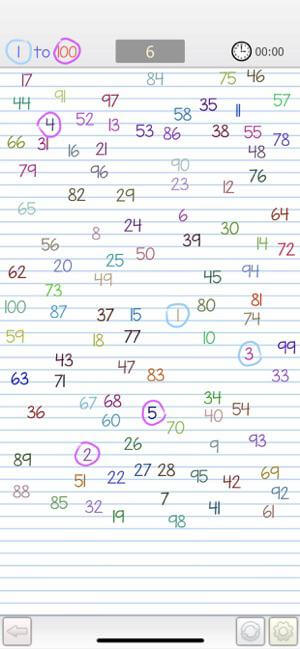 1 to 100 6 00:00
17 84 75 46
44 91 97 35 11 57
4 52 13 58
53 86 38 55
66 31 16 21 48 78
79 96 90 76
82 29 23 12
65 6 64
8 24 30
56 39 14 72
62 20 25 50 45 94
49
73 81
100 87 37 15 1 80 74
59 18 77 10 99
43 3
63 71 47 83 33
67 68 34
36 60 5 40 54
70
26 9 93
89 2
51 22 27 28 95 42 69
88 92
85 32 7 41 61
19 98